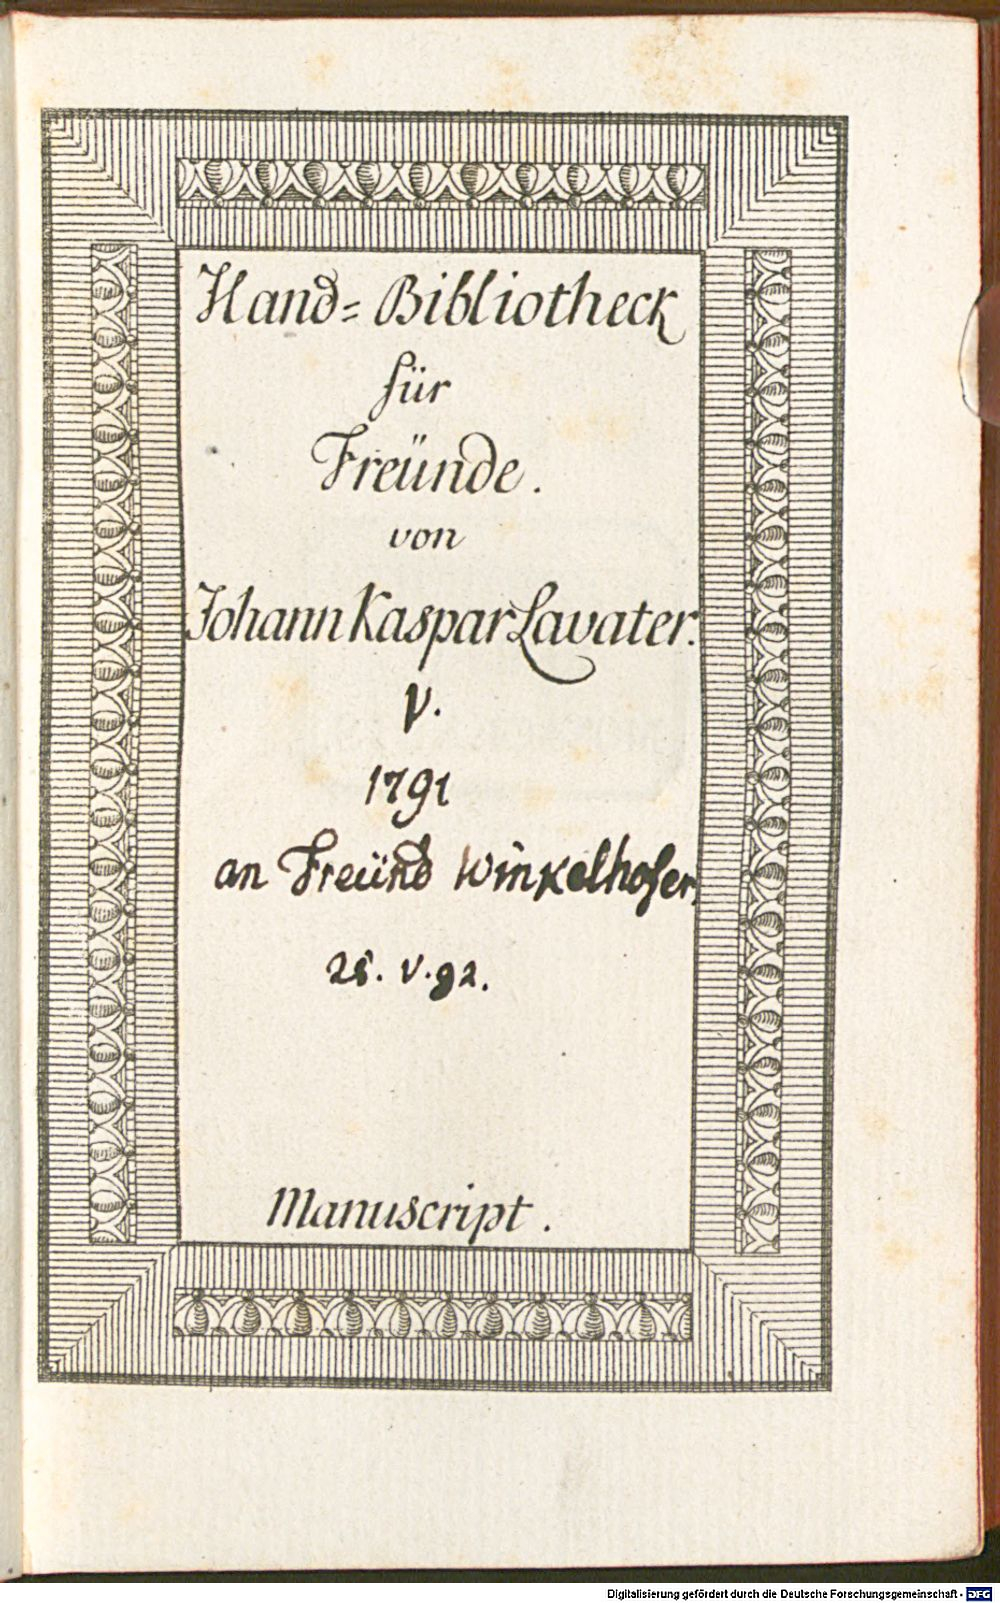 Hand=Bibliotheck
für
Freünde.
von
Johann Kaspar Lavater.
V.
1791
an Freünd Winkelhofer,
28. V. 92.
Manuscript.
Digitalisierung gefördert durch die Deutsche Forschungsgemeinschaft - DFG